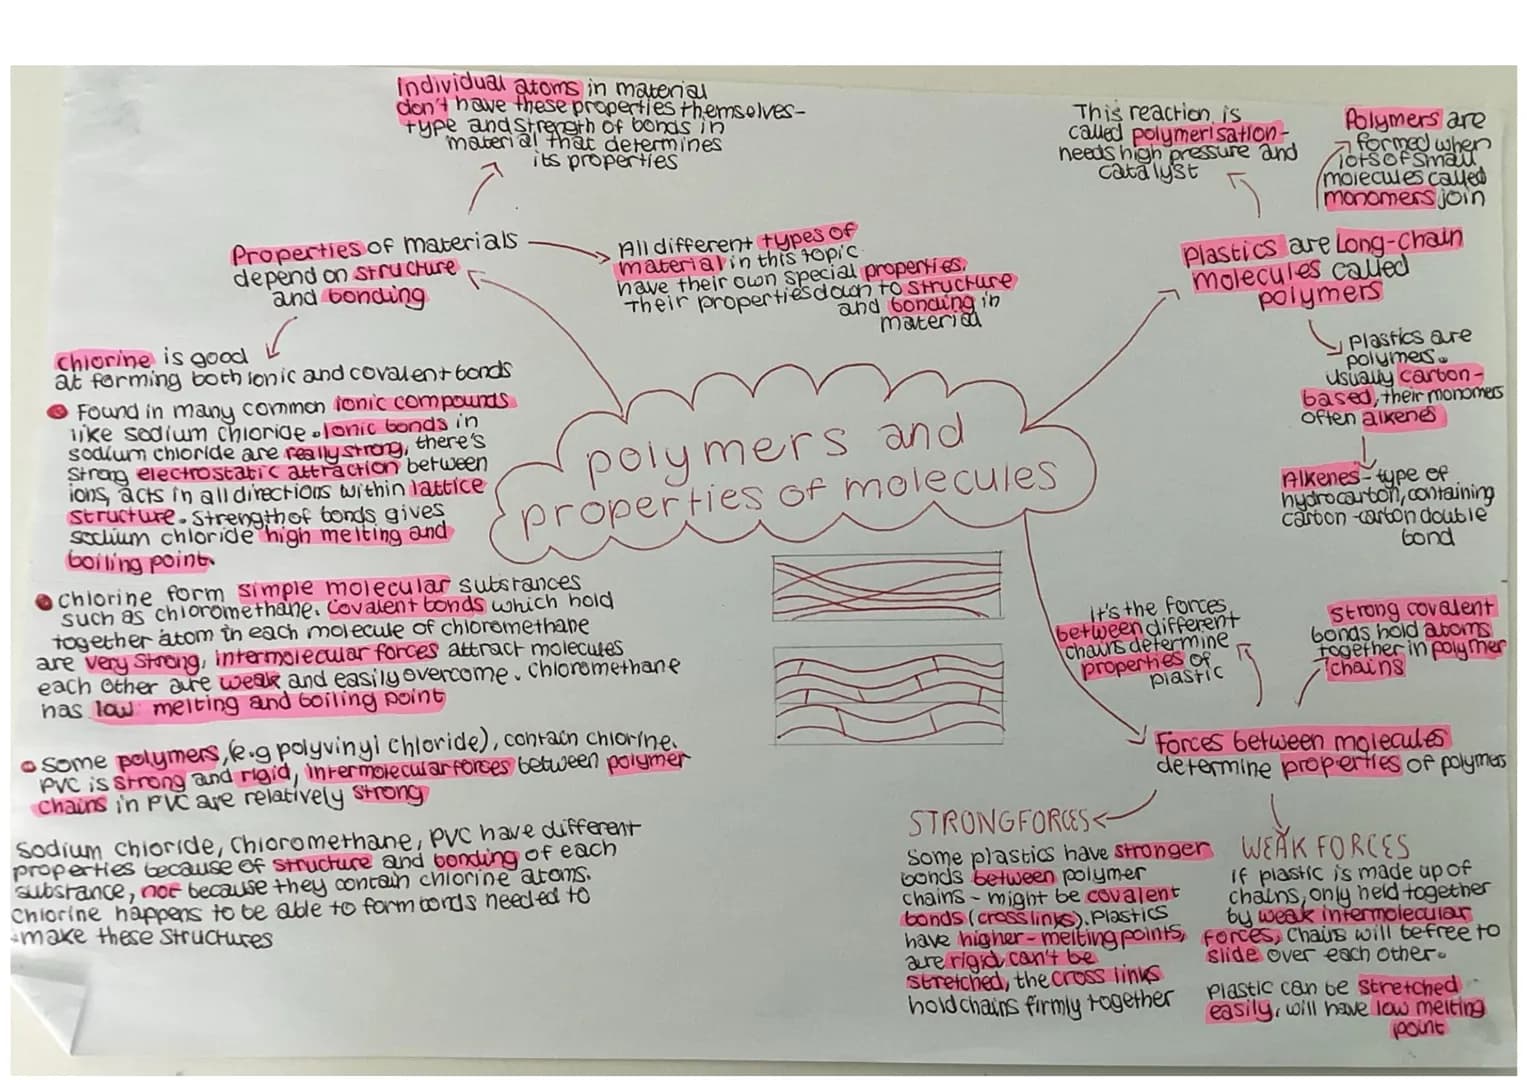 Individual atoms in material
don't have these properties themselves-
type and strength of bonds in
material that determines
its properties
Properties of materials
depend on structure
and bonding
All different types of
material in this topic
have their own special properties.
Their properties down to structure
and bonding in
material
chlorine is good
at forming both ionic and covalent bonds
Found in many common ionic compounds
like sodium chloride. Ionic bonds in
sodium chloride are really strong, there's
strong electrostatic attraction between
ions, acts in all directions within lattice
structure. Strength of bonds gives
sodium chloride high melting and
boiling point.
chlorine form simple molecular substances
such as chloromethane. Covalent bonds which hold
together atom in each molecule of chloromethane
are very strong, intermolecular forces attract molecules
each other are weak and easily overcome. Chloromethane
has low melting and boiling point
Some polymers, (e.g polyvinyl chloride), contain chlorine.
PVC is strong and rigid, intermolecular forces between polymer
chains in PVC are relatively strong
Sodium chloride, Chloromethane, PVC have different
properties because of structure and bonding of each
substance, not because they contain chlorine atoms.
Chlorine happens to be able to form bonds needed to
make these structures
polymers and
properties of molecules
This reaction is
called polymerisation-
needs high pressure and
catalyst
Polymers are
formed when
lots of small
molecules called
monomers join
Plastics are Long-chain
molecules called
polymers
Plastics are
polymers.
usually carbon-
based, their monomers
often alkenes
Alkenes - type of
hydrocarbon, containing
carbon-carbon double
bond
It's the forces
between different
chains determine
properties of
plastic
Strong covalent
bonds hold atoms
together in polymer
chains
Forces between molecules
determine properties of polymers
STRONG FORCES
Some plastics have stronger
bonds between polymer
chains - might be covalent
bonds (crosslinks). Plastics
have higher-melting points,
are rigid, can't be
stretched, the cross links
hold chains firmly together
WEAK FORCES
if plastic is made up of
chains, only held together
by weak intermolecular
forces, Chains will be free to
slide over each other.
Plastic can be stretched
easily, will have low melting
point